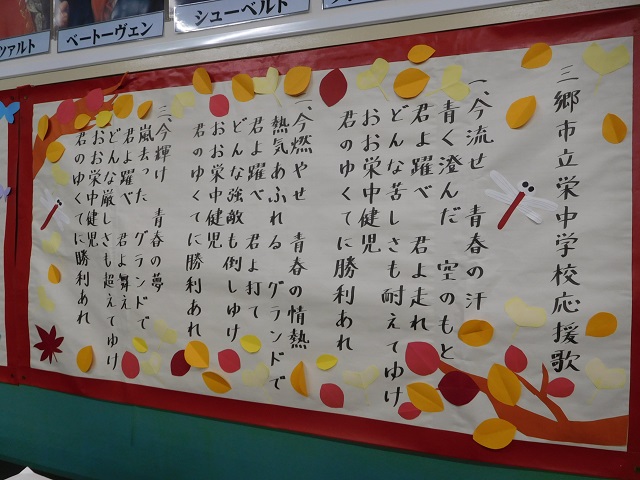 ツァルト
ベートーヴェン
シューベルト
三郷市立栄中学校応援歌
一、今流せ 青春の汗
青く澄んだ 空のもと
君よ躍べ 君よ走れ
どんな苦しさも耐えてゆけ
おお栄中健児
君のゆくてに勝利あれ
一、今燃やせ 青春の情熱
熱気あふれる グランドで
君よ躍べ 君よ打て
どんな強敵も倒しゆけ
おお栄中健児
君のゆくてに勝利あれ
三、今輝け 青春の夢
嵐去った グランドで
君よ躍べ 君よ舞え
どんな厳しさも超えてゆけ
おお栄中健児
君のゆくてに勝利あれ